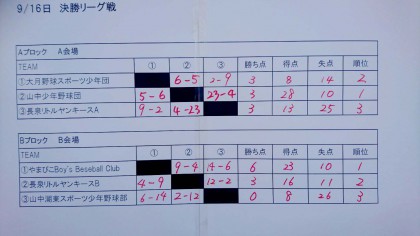 9/16日 決勝リーグ戦
Aブロック A会場
TEAM ① ② ③ 勝ち点 得点 失点 順位
①大月野球スポーツ少年団 6-5 2-9 3 8 14 2
②山中少年野球団 5-6 23-4 3 28 10 1
③長泉リトルヤンキースA 9-2 4-23 3 13 25 3
Bブロック B会場
TEAM ① ② ③ 勝ち点 得点 失点 順位
①やまびこBoy's Beseball Club 9-4 14-6 6 23 10 1
②長泉リトルヤンキースB 4-9 12-2 3 16 11 2
③山中湖東スポーツ少年野球部 6-14 2-12 0 8 26 3